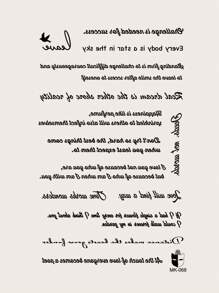 Challenge is needed for success.
leave
Every body is a star in the sky
standing firm is to challenge difficult courageously and
to leave the smile after success to oneself
Real dream is the other shore of reality
Happiness is like perfume,
sprinkled to others will also infect themselves
Don't try so hard, the best things come
when you least expect them to.
I love you not because of who you are,
but because of who I am when I am with you.
Love will find a way. Time works wonders.
If I had a single flower for every time I think about you,
I could walk forever in my garden.
Distance makes the hearts grow fonder
At the touch of love everyone becomes a poet
MK-068